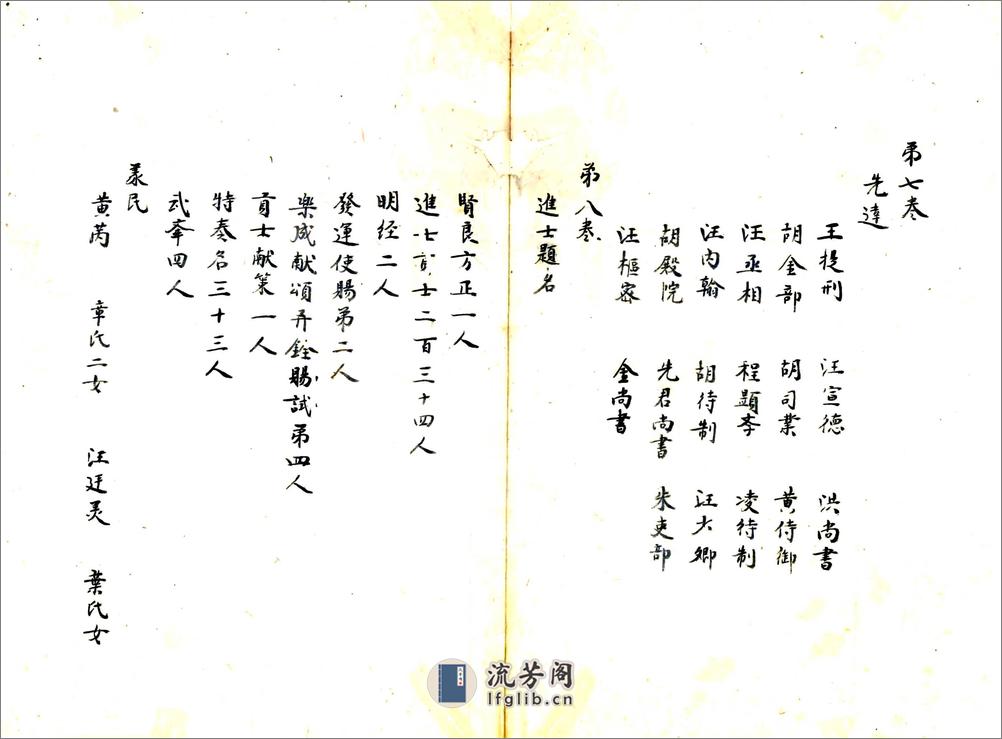 第七卷
先達
王提刑 汪宣德 洪尚書
胡金部 胡司業 黄侍御
汪丞相 程顯學 凌待制
汪内翰 胡待制 汪大卿
胡殿院 先君尚書 朱吏部
汪樞密 金尚書
第八卷
進士題名
賢良方正一人
進士二百三十四人
明经二人
發運使賜第二人
樂成献頌并銓賜試第四人
貢士献策一人
特奏名三十三人
武舉四人
義民
黄芮 章氏二女 汪廷美 葉氏女
流芳阁
lfglib.cn